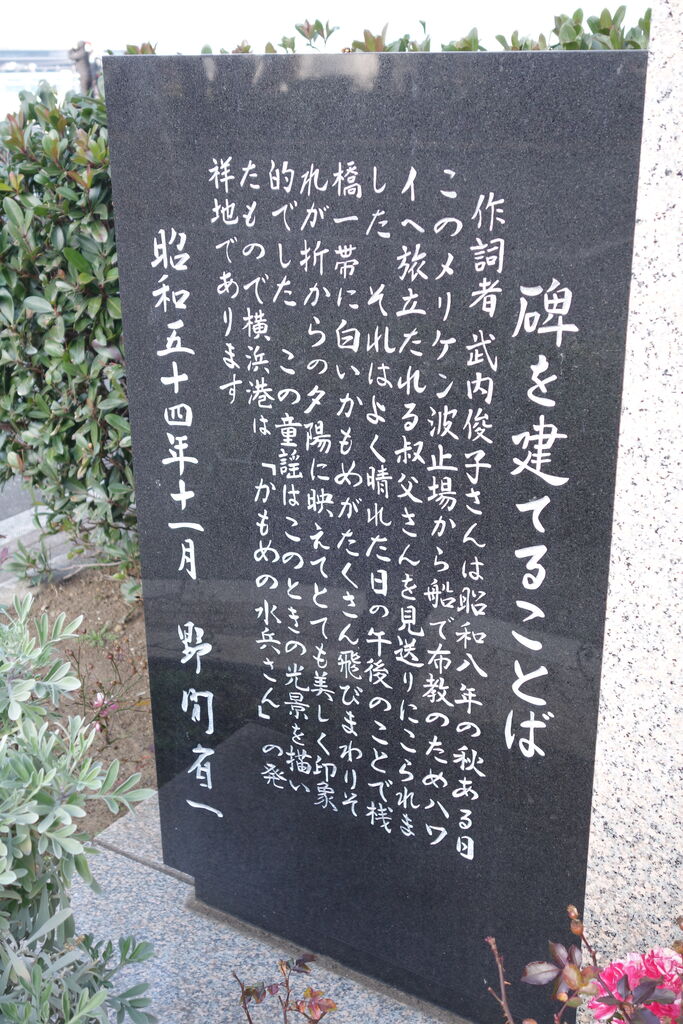 碑を建てることば
作詞者 武内俊子さんは昭和八年の秋ある日
このメリケン波止場から船で布教のためハワ
イへ旅立たれる叔父さんを見送りにこられま
した それはよく晴れた日の午後のことで桟
橋一帯に白いかもめがたくさん飛びまわりそ
れが折からの夕陽に映えてとても美しく印象
的でした この童謡はこのときの光景を描い
たもので横浜港は「かもめの水兵さん」の発
祥地であります
昭和五十四年十一月 野間有一